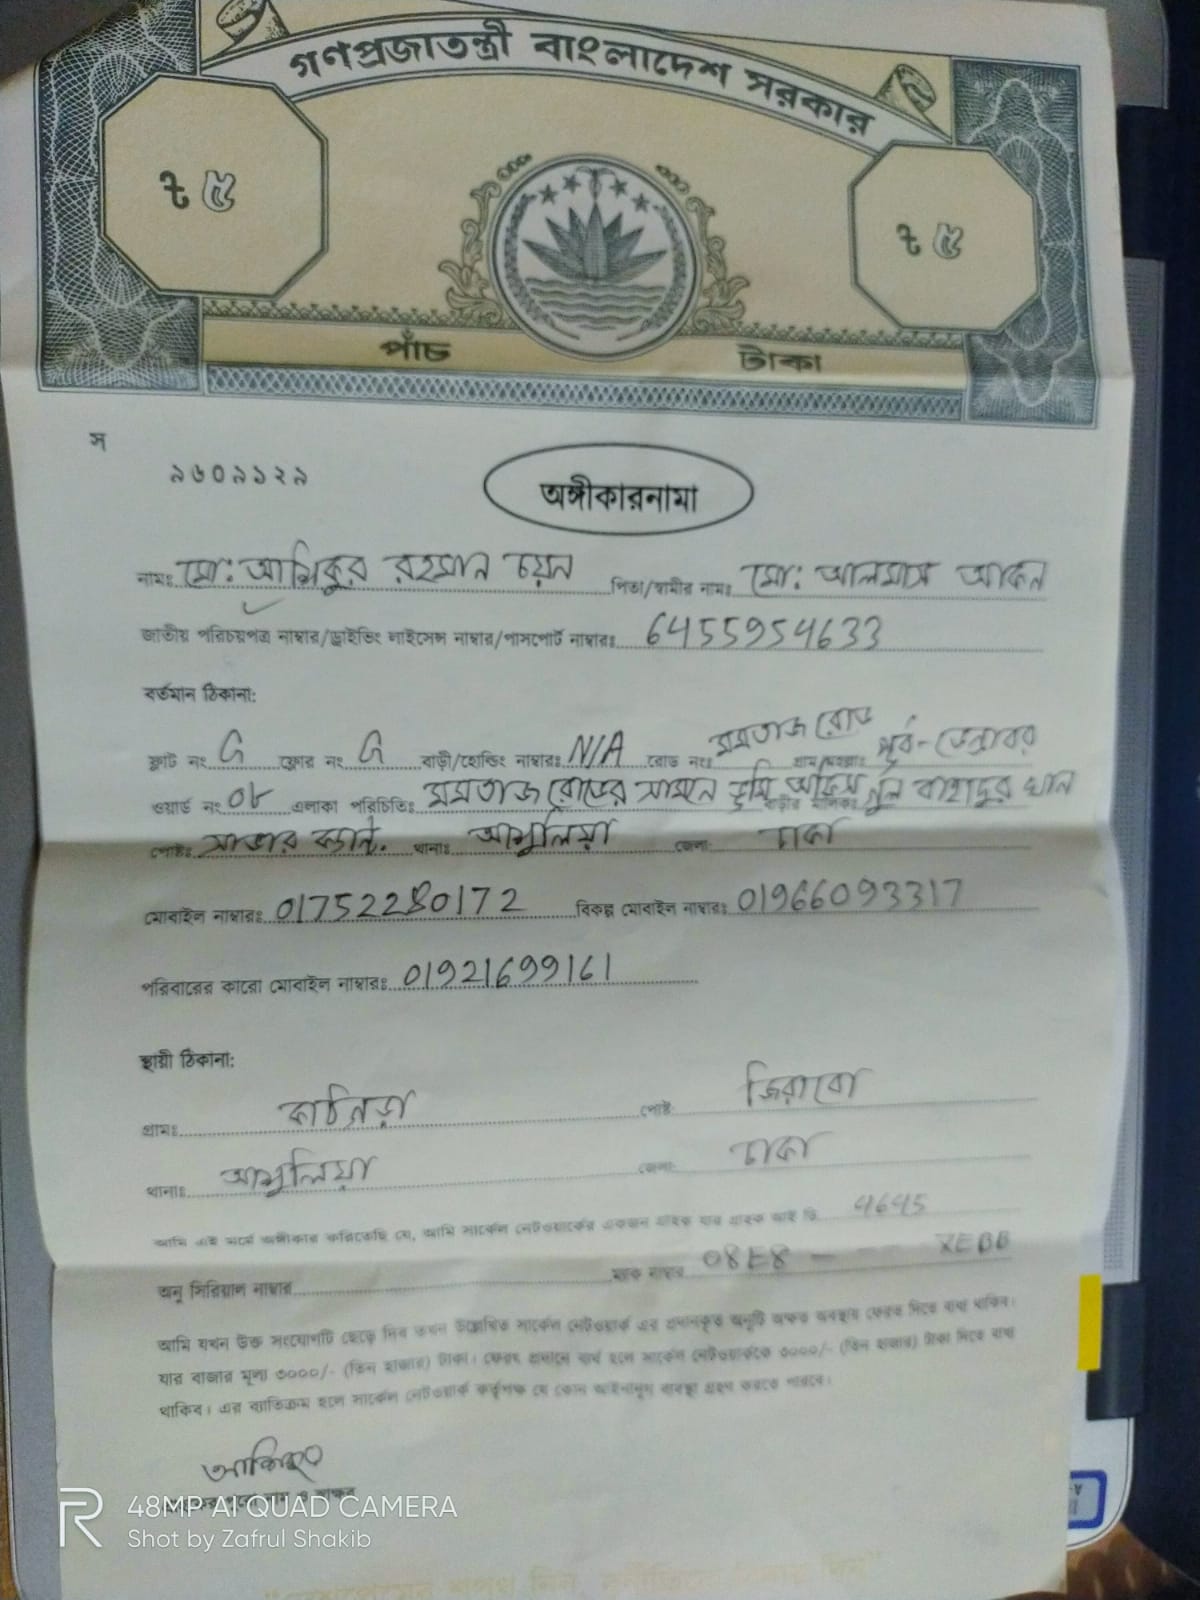 গণপ্রজাতন্ত্রী বাংলাদেশ সরকার
৳ ৫
৳ ৫
পাঁচ টাকা
স
৯৬০৯১২৯
অঙ্গীকারনামা
নামঃ মো: আশিকুর রহমান চয়ন পিতা/স্বামীর নামঃ মো: আলমাস আকন
জাতীয় পরিচয়পত্র নাম্বার/ড্রাইভিং লাইসেন্স নাম্বার/পাসপোর্ট নাম্বারঃ 6455954633
বর্তমান ঠিকানা:
ফ্লাট নং G ফ্লোর নং G বাড়ী/হোল্ডিং নাম্বারঃ N/A রোড নং মমতাজ রোড গ্রাম/মহল্লাঃ পূর্ব-ডেন্ডাবর
ওয়ার্ড নং ০৮ এলাকা পরিচিতিঃ মমতাজ রোডের সামনে ভূমি অফিস বাহাদুর খান
পোষ্টঃ সাভার ক্যান্ট. থানাঃ আশুলিয়া জেলা ঢাকা
মোবাইল নাম্বারঃ 01752280172 বিকল্প মোবাইল নাম্বারঃ 01966093317
পরিবারের কারো মোবাইল নাম্বারঃ 01921699161
স্থায়ী ঠিকানা:
গ্রামঃ কাঠগড়া পোষ্ট জিরাবো
থানাঃ আশুলিয়া জেলা ঢাকা
আমি এই মর্মে অঙ্গীকার করিতেছি যে, আমি সার্কেল নেটওয়ার্কের একজন গ্রাহক যার গ্রাহক আই ডি 4645
অনু সিরিয়াল নাম্বার ম্যাক নাম্বার 08E8 — XEBB
আমি যখন উক্ত সংযোগটি ছেড়ে দিব তখন উল্লেখিত সার্কেল নেটওয়ার্ক এর প্রদানকৃত অনুটি অক্ষত অবস্থায় ফেরত দিতে বাধ্য থাকিব।
যার বাজার মূল্য ৩০০০/- (তিন হাজার) টাকা। ফেরৎ প্রদানে ব্যর্থ হলে সার্কেল নেটওয়ার্ককে ৩০০০/- (তিন হাজার) টাকা দিতে বাধ্য
থাকিব। এর ব্যতিক্রম হলে সার্কেল নেটওয়ার্ক কর্তৃপক্ষ যে কোন আইনানুগ ব্যবস্থা গ্রহণ করতে পারবে।
আশিকুর
48MP AI QUAD CAMERA
Shot by Zafrul Shakib